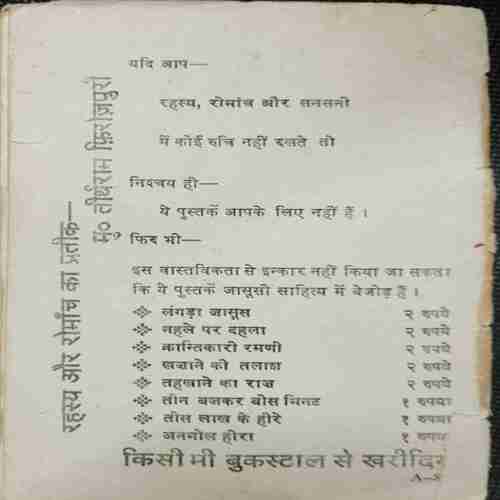 रहस्य और रोमांच का प्रतीक—
मुं० तीर्थराम फ़िरोज़पुरी
यदि आप—
रहस्य, रोमांच और सनसनी
में कोई रुचि नहीं रखते तो
निश्चय ही—
ये पुस्तकें आपके लिए नहीं हैं ।
फिर भी—
इस वास्तविकता से इन्कार नहीं किया जा सकता
कि ये पुस्तकें जासूसी साहित्य में बेजोड़ हैं ।
लंगड़ा जासूस २ रुपये
नहले पर दहला २ रुपये
क्रान्तिकारी रमणी २ रुपये
खज़ाने की तलाश २ रुपये
तहखाने का राज़ २ रुपये
तीन बजकर बीस मिनट १ रुपया
तीस लाख के हीरे १ रुपया
अनमोल हीरा १ रुपया
किसी भी बुकस्टाल से खरीदिए